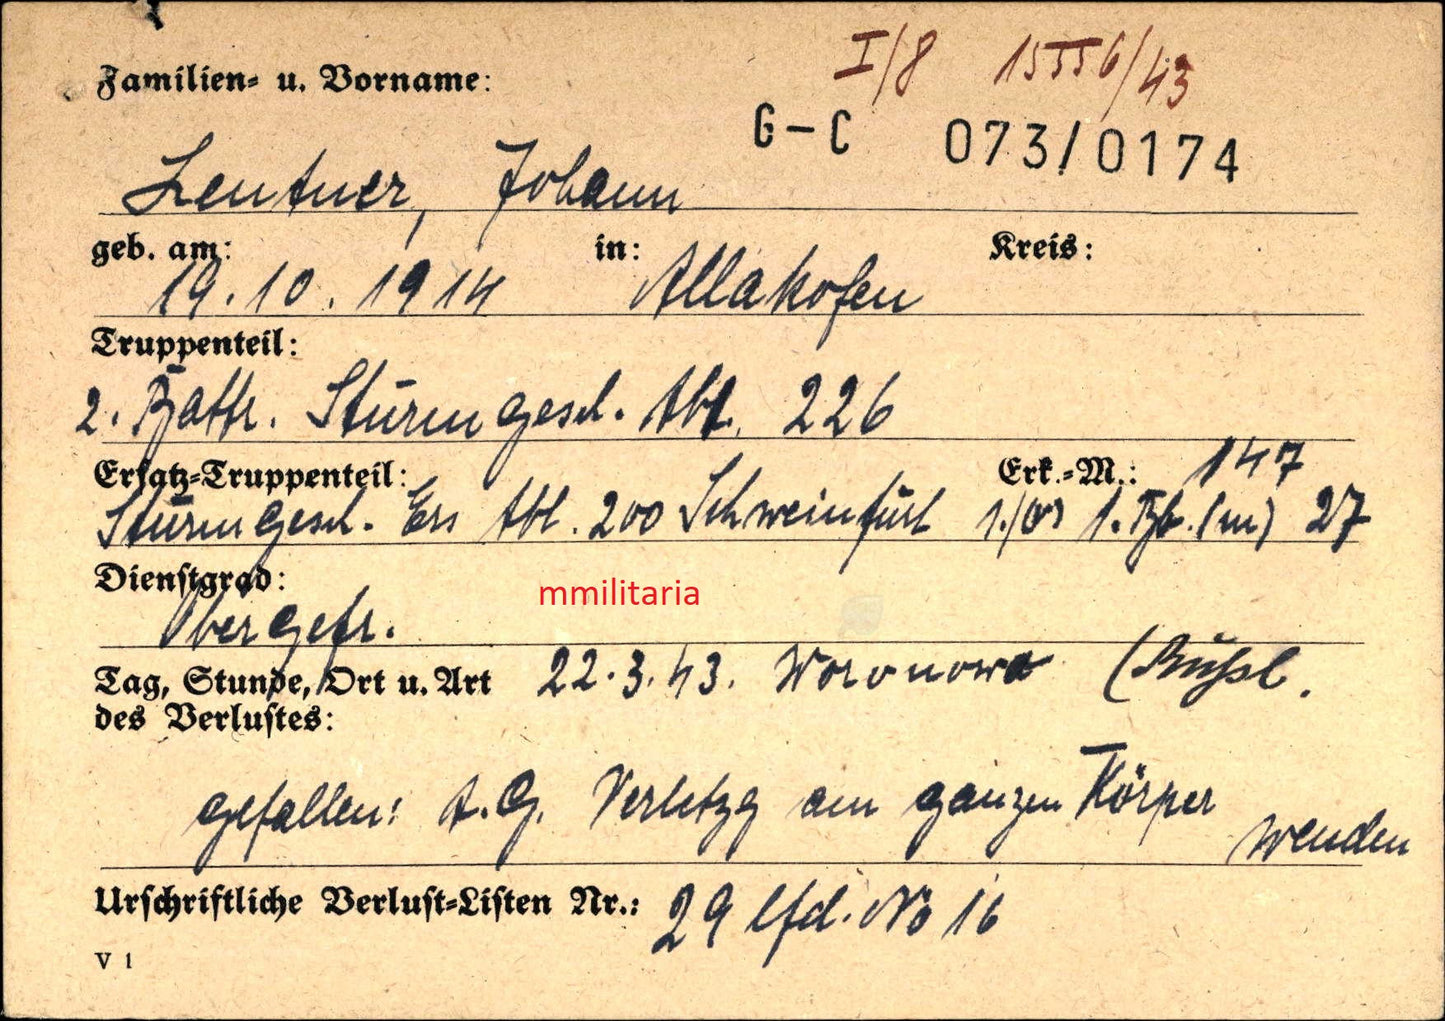 I/8 15556/43
Familien- u. Vorname:
G-C 073/0174
Lentner, Johann
geb. am: in: Kreis:
19.10.1914 Allakofen
Truppenteil:
2. Battr. Sturmgesch. Abt. 226
Ersatz-Truppenteil: Erk.-M.: 147
Sturmgesch. Ers Abt. 200 Schweinfurt 27
Dienstgrad:
Obergefr.
mmilitaria
Tag, Stunde, Ort u. Art 22.3.43. Woronowo (Rußl.
des Verlustes:
gefallen: A.G. Verletzg am ganzen Körper
wenden
Urschriftliche Verlust-Listen Nr.: 29 lfd. No 16
V 1